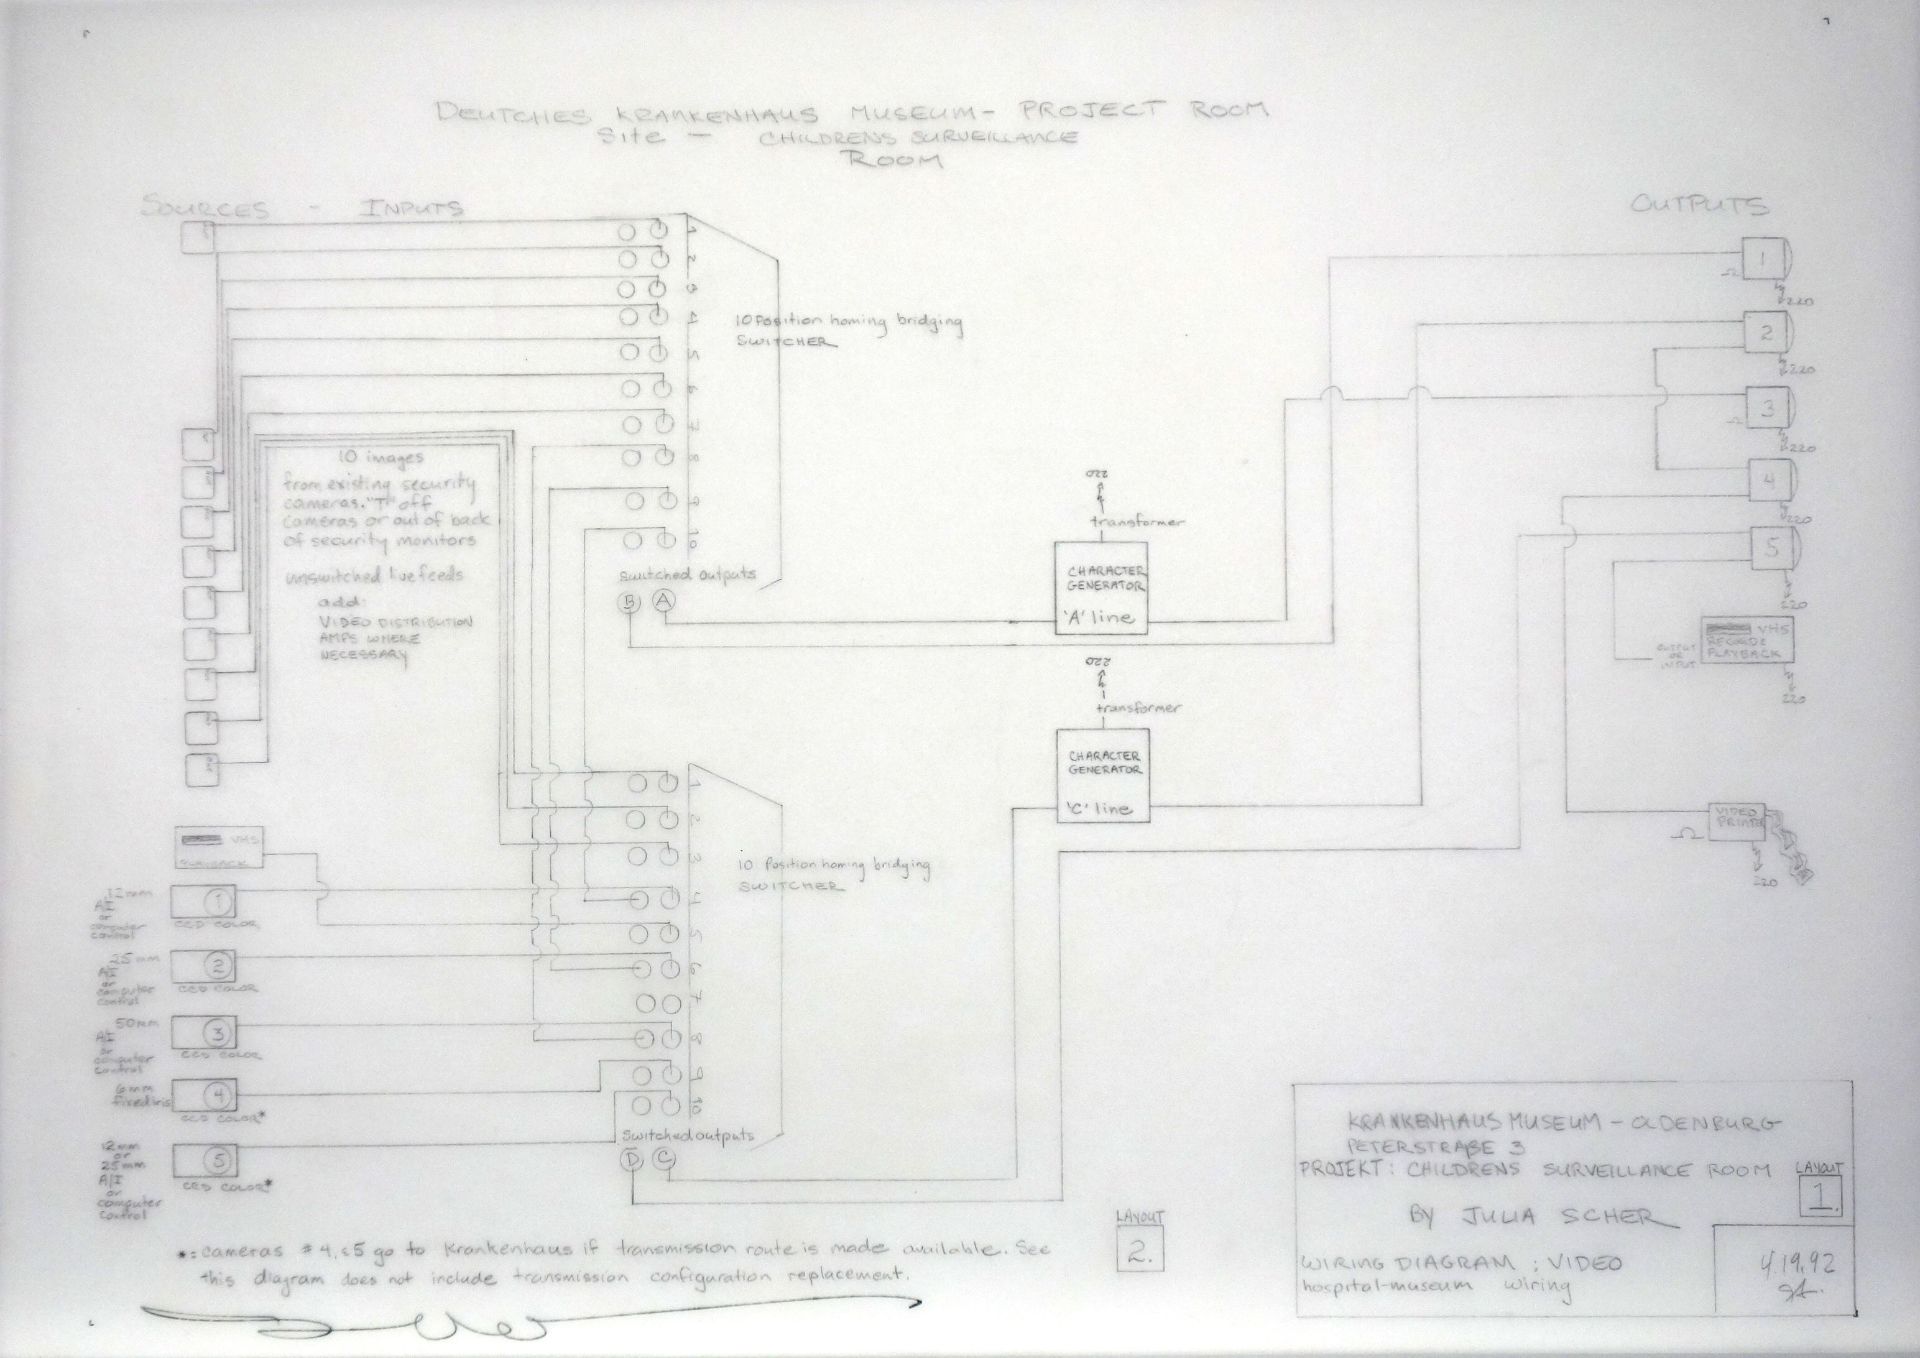 DEUTCHES KRANKENHAUS MUSEUM- PROJECT ROOM
Site - CHILDRENS SURVEILLANCE
ROOM
SOURCES - INPUTS
OUTPUTS
1
2
3
4
5
6
7
8
9
10
10 Position homing bridging
SWITCHER
Switched outputs
B A
10 images
from existing security
cameras. "T" off
cameras or out of back
of security monitors
unswitched live feeds
add:
VIDEO DISTRIBUTION
AMPS WHERE
NECESSARY
220
transformer
CHARACTER
GENERATOR
'A' line
220
transformer
CHARACTER
GENERATOR
'C' line
1
220
2
220
3
220
4
220
5
220
VHS
RECORD &
PLAYBACK
OUTPUT
OR
INPUT
220
VIDEO
PRINTER
220
VHS
PLAYBACK
12mm
A/I
or
computer
control
1
CCD COLOR
25mm
A/I
or
computer
control
2
CCD COLOR
50mm
A/I
or
computer
control
3
CCD COLOR
6mm
fixed iris
4
CCD COLOR*
12mm
or
25mm
A/I
or
computer
control
5
CCD COLOR*
1
2
3
4
5
6
7
8
9
10
10 Position homing bridging
SWITCHER
Switched outputs
D C
*: cameras #4, &5 go to Krankenhaus if transmission route is made available. See
this diagram does not include transmission configuration replacement.
LAYOUT
2.
KRANKENHAUS MUSEUM - OLDENBURG
PETERSTRAßE 3
PROJEKT: CHILDRENS SURVEILLANCE ROOM
LAYOUT
1.
BY JULIA SCHER
WIRING DIAGRAM : VIDEO
hospital-museum wiring
4.19.92